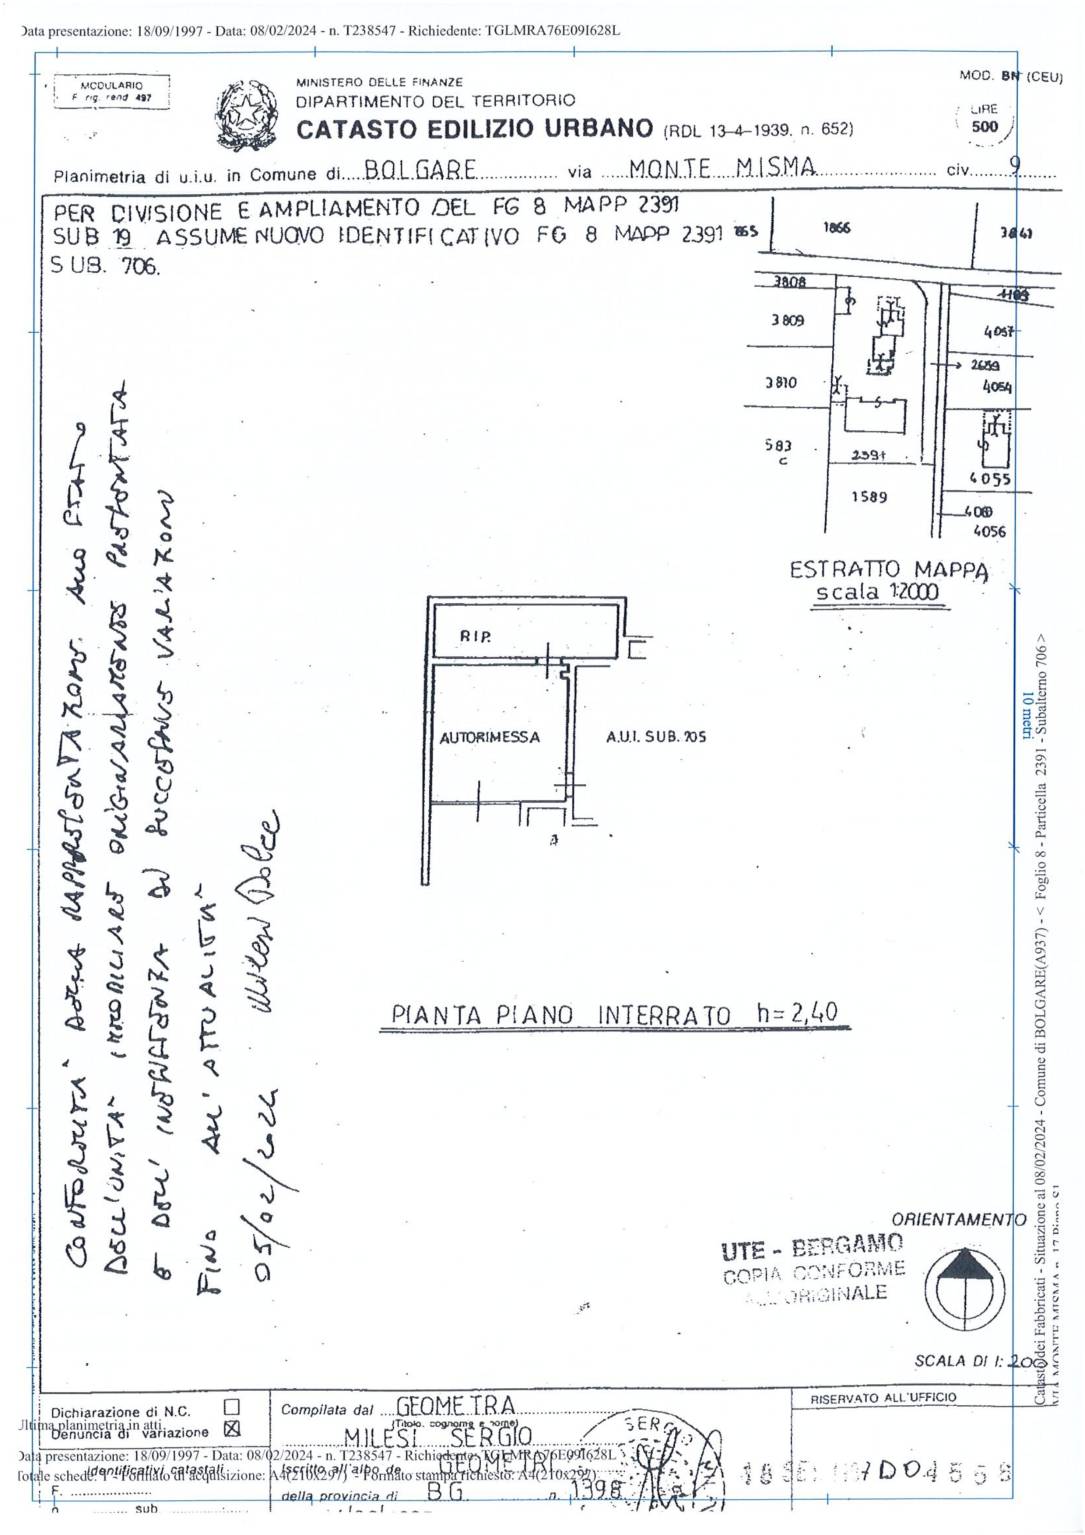 Data presentazione: 18/09/1997 - Data: 08/02/2024 - n. T238547 - Richiedente: TGLMRA76E09I628L
MODULARIO
F. rig. rend 497
MINISTERO DELLE FINANZE
DIPARTIMENTO DEL TERRITORIO
CATASTO EDILIZIO URBANO (RDL 13-4-1939. n. 652)
MOD. BN (CEU)
LIRE
500
Planimetria di u.i.u. in Comune di....BOLGARE.............. via ......MONTE MISMA........................ civ.......9......
PER DIVISIONE E AMPLIAMENTO DEL FG 8 MAPP 2391
SUB 19 ASSUME NUOVO IDENTIFICATIVO FG 8 MAPP 2391
SUB. 706.
1866
3808
3809
3810
583
C
2391
1589
4057
2659
4054
4055
4056
ESTRATTO MAPPA
scala 1:2000
RIP.
AUTORIMESSA
A.U.I. SUB. 705
PIANTA PIANO INTERRATO h=2,40
CONFORMITA' DELLA RAPPRESENTAZIONE ALLO STATO
DELL'UNITA' IMMOBILIARE ORIGINARIAMENTE PRESENTATA
E DELL'INESISTENZA DI SUCCESSIVE VARIAZIONI
FINO ALL'ATTUALITA'
05/02/2024
10 metri
Catasto dei Fabbricati - Situazione al 08/02/2024 - Comune di BOLGARE(A937) - < Foglio 8 - Particella 2391 - Subalterno 706 >
VIA MONTE MISMA n. 17 Piano S1
ORIENTAMENTO
UTE - BERGAMO
COPIA CONFORME
ALL'ORIGINALE
SCALA DI 1: 200
Dichiarazione di N.C.
Denuncia di variazione
Ultima planimetria in atti
Compilata dal ...GEOMETRA
(Titolo. cognome e nome)
MILESI SERGIO
RISERVATO ALL'UFFICIO
Data presentazione: 18/09/1997 - Data: 08/02/2024 - n. T238547 - Richiedente: TGLMRA76E09I628L
Totale schede: 1 - Formato di acquisizione: A4(210x297) - Formato stampa richiesto: A4(210x297)
Identificativi catastali
Iscritto all'albo de GEOMETRI
F. ....................
della provincia di BG n. 1398
n. sub
SERGIO